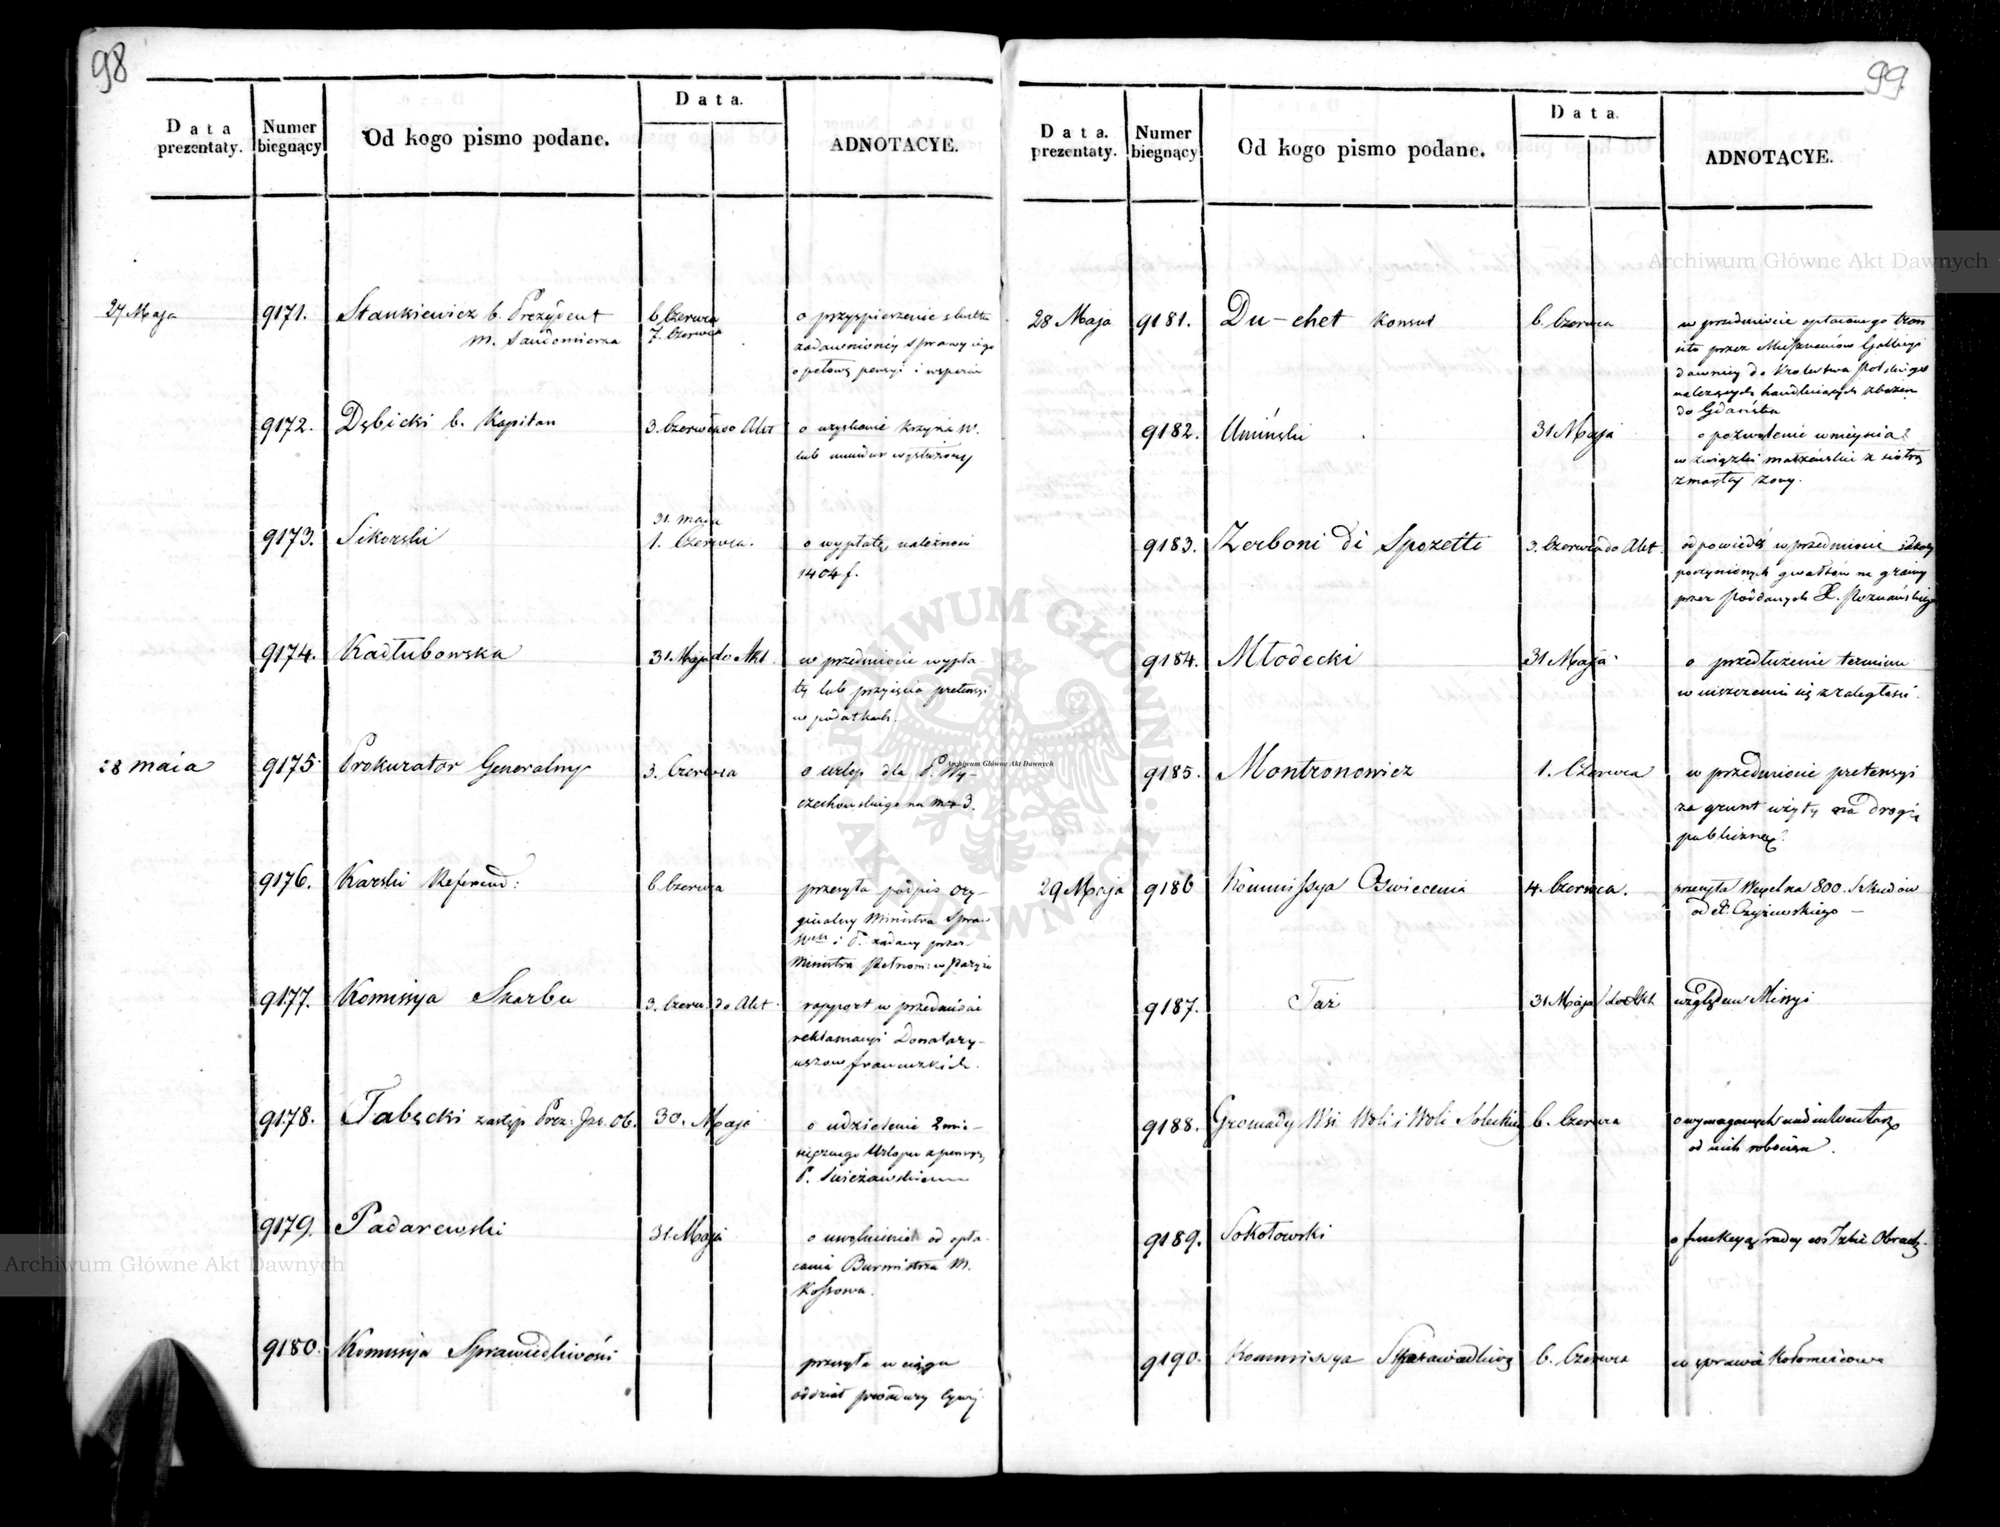 98
Data prezentaty.
Numer biegnący
Od kogo pismo podane.
Data.
ADNOTACYE.
27 Maja
9171.
Stankiewicz b. Prezydent
m. Sandomierza
6 Czerwca
7. Czerwca
o przyspieszenie skutku
zadawnionéy sprawy iego
o połowę pensyi i wsparcie
9172.
Dębicki b. Kapitan
3. Czerwca do Akt
o uzyskanie krzyża W.
lub mundur wysłużony
9173.
Sikorski
31. maja
1. Czerwca.
o wypłatę należności
1404 f.
9174.
Kadłubowska
31. Maja do Akt.
w przedmiocie wypła-
ty lub przyięcia pretensyi
w podatkach.
28 maia
9175.
Prokurator Generalny
3. Czerwca
o urlop dla P. Wy-
czechowskiego na m. 3.
9176.
Karski Referend:
6 Czerwca
przesyła podpis ory-
ginalny Ministra Spraw
i P. zadany przez
Ministra Pełnom: w Paryżu
9177.
Komissya Skarbu
3. Czerw. do Akt.
rapport w przedmiocie
reklamacyi Donatary-
uszow francuzkich.
9178.
Tabęcki zastęp. Prez: Izb. Ob.
30. Maja
o udzielenie 2 mie-
sięcznego Urlopu z pensyą
P. Swieżawskiemu
9179.
Padarewski
31. Maja
o uwolnienie od opła-
cania Burmistrza M.
Kossowa.
9180.
Komissyja Sprawiedliwości
przesyła w ciągu
oddział procedury Cywj.
99.
Data. prezentaty.
Numer biegnący
Od kogo pismo podane.
Data.
ADNOTACYE.
28 Maja
9181.
Du-chet Konsul
6. Czerwca
w przedmiocie opłaconego tran
sito przez Mieszkańców Gallicyi
dawniey do Krolestwa Polskiego
należących handluiących zbożem
do Gdańska
9182.
Umiński
31 Maja
o pozwolenie wnieyścia
w związki małżeńskie z siostrą
zmarłej żony.
9183.
Zerboni di Spozetti
3. Czerwca do Akt.
odpowiedź w przedmiocie szkody
poczynionych gwałtów na granicy
przez Poddanych X. Poznańskiego
9184.
Młodecki
31 Maja
o przedłużenie terminu
w uiszczeniu się z zaległości.
9185.
Montronowicz
1. Czerwca
w przedmiocie pretensyi
za grunt użyty na drogę
publiczną.
29 Maja
9186
Kommissya Oswiecenia
4. Czerwca.
przesyła Wexel na 800. Szkudów
od P. Czyżewskiego —
9187.
Taż
31 Maja do Akt
względem Missyi
9188.
Gromady Wsi Woli i Woli Soleckiey
6. Czerwca
o wymaganych nad inwentarz
od nich robocizn.
9189.
Sokołowski
o funkcyą radcy w Izbie Obrach.
9190.
Kommissya Sprawiedliwoś
6. Czerwca
w sprawie Kołomiecowe
Archiwum Główne Akt Dawnych
Archiwum Główne Akt Dawnych
Archiwum Główne Akt Dawnych
ARCHIWUM GŁÓWNE AKT DAWNYCH